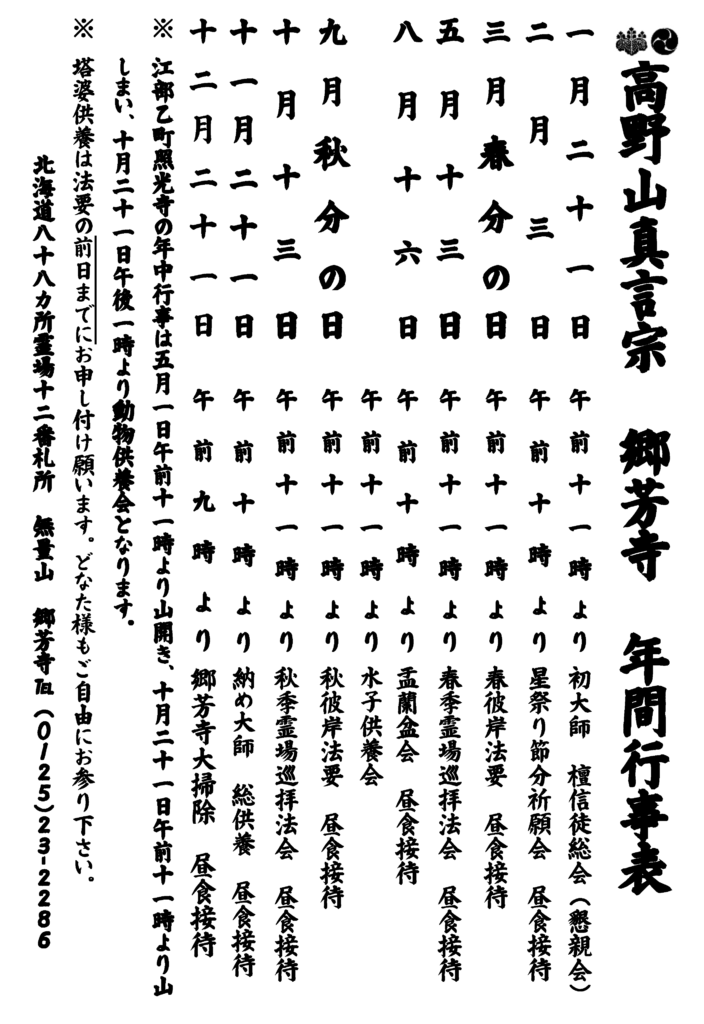 高野山真言宗　郷芳寺　年間行事表
一月二十一日　午前十一時より　初大師　檀信徒総会（懇親会）
二月三日　午前十時より　星祭り節分祈願会　昼食接待
三月春分の日　午前十一時より　春彼岸法要　昼食接待
五月十三日　午前十一時より　春季霊場巡拝法会　昼食接待
八月十六日　午前十時より　盂蘭盆会　昼食接待
午前十一時より　水子供養会
九月秋分の日　午前十一時より　秋彼岸法要　昼食接待
十月十三日　午前十一時より　秋季霊場巡拝法会　昼食接待
十一月二十一日　午前十時より　納め大師　総供養　昼食接待
十二月二十一日　午前九時より　郷芳寺大掃除　昼食接待
※　江部乙町照光寺の年中行事は五月一日午前十一時より山開き、十月二十一日午前十一時より山
しまい、十月二十一日午後一時より動物供養会となります。
※　塔婆供養は法要の前日までにお申し付け願います。どなた様もご自由にお参り下さい。
北海道八十八カ所霊場十二番札所　無量山　郷芳寺℡（０１２５）２３-２２８６